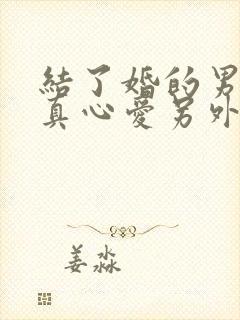 結了婚的男
真心愛另外
姜淼